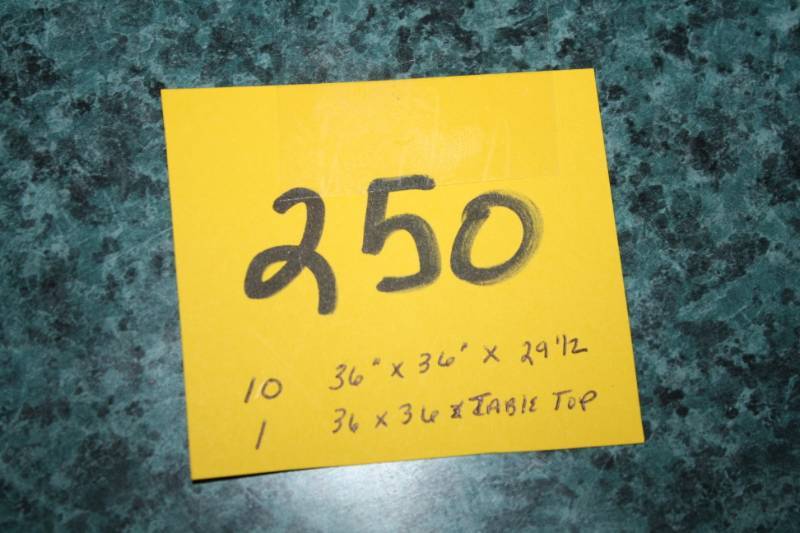 250
10 36" x 36" x 29 1/2
1 36 x 36 x TABLE TOP